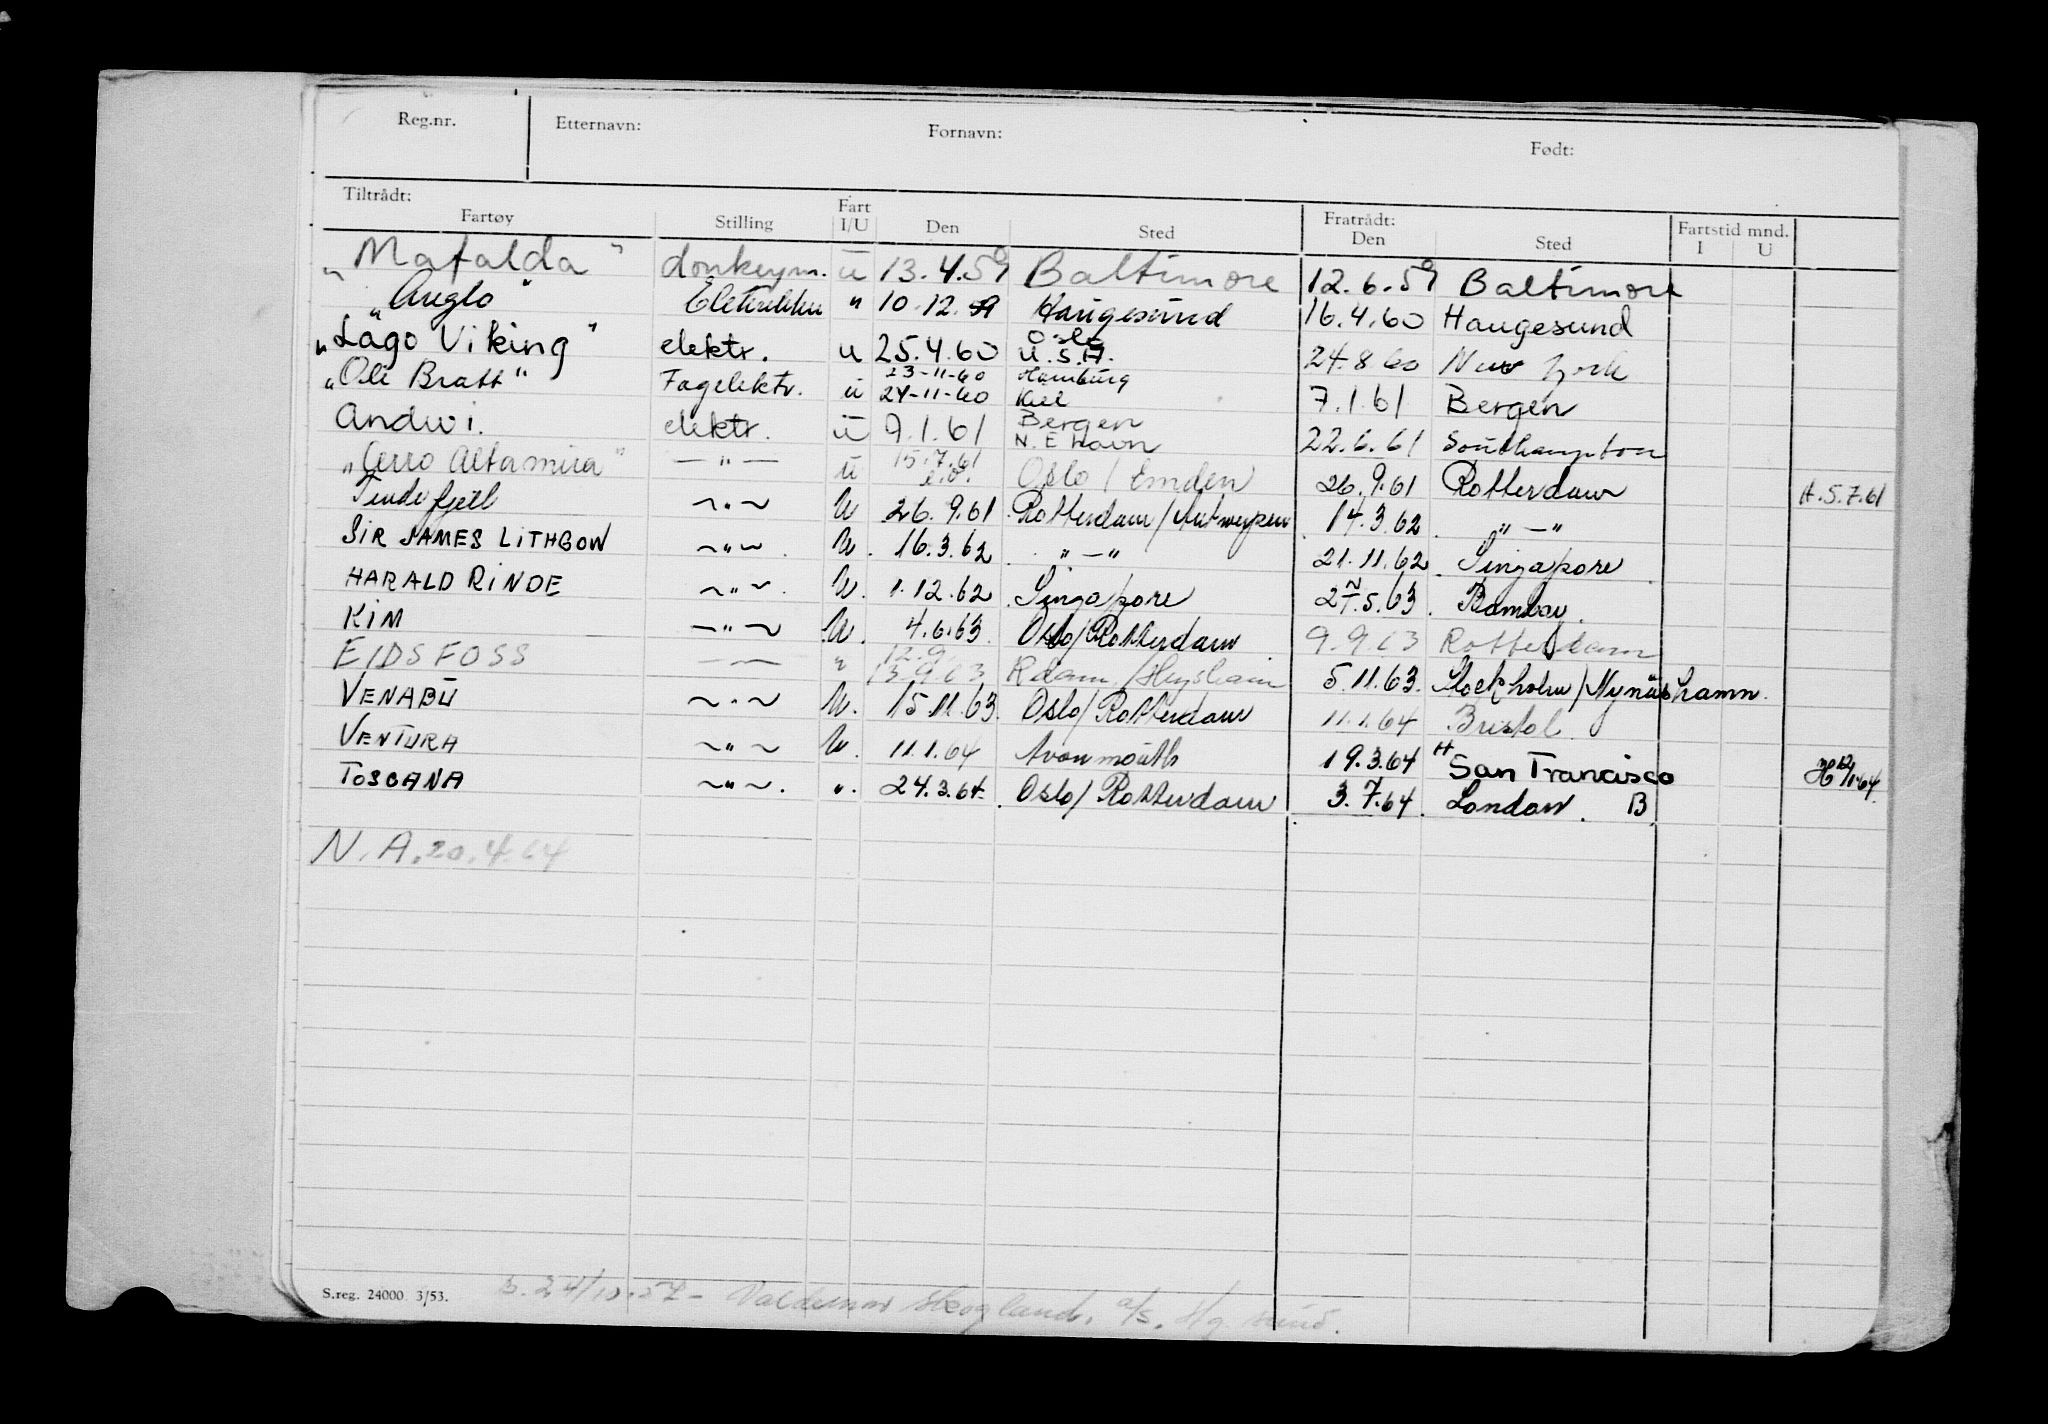 Reg.nr. Etternavn: Fornavn: Født:
Tiltrådt: Fratrådt: Fartstid mnd.
Fartøy Stilling Fart I/U Den Sted Den Sted I U
"Mafalda" donkeym. u 13.4.59 Baltimore 12.6.59 Baltimore
"Anglo" Elektriker " 10.12.59 Haugesund 16.4.60 Haugesund
"Lago Viking" elektr. u 25.4.60 Oslo U.S.A. 24.8.60 New York
"Ole Bratt" Fagelektr. u 23-11-60 24-11-60 Hamburg Kiel 7.1.61 Bergen
Andwi. elektr. u 9.1.61 Bergen N.E havn 22.6.61 Southampton
"Cerro Altamira" — " — u 15.7.61 Oslo / Emden 26.9.61 Rotterdam H. 5.7.61
Tindefjell ~ " ~ U 26.9.61 Rotterdam/Antwerpen 14.3.62 " — "
SIR JAMES LITHGOW ~ " ~ U. 16.3.62 " — " 21.11.62 Singapore
HARALD RINDE ~ " ~ U. 1.12.62 Singapore 27.5.63 Bombay
KIM — " ~ U. 4.6.63 Oslo/Rotterdam 9.9.63 Rotterdam
EIDSFOSS — — " 12.9 13.9.63 Rdam./Heysham 5.11.63. Stockholm/Nynäshamn.
VENABU ~ " ~ U. 15.11.63 Oslo/Rotterdam 11.1.64 Bristol.
VENTURA ~ " ~ U. 11.1.64 Avonmouth 19.3.64 H San Francisco
TOSCANA ~ " ~ . ". 24.3.64 Oslo/Rotterdam 3.7.64 London. B
N.A. 20.4.64
S.reg. 24000 3/53. 24/10.57 - Valdemar Skogland. a/s. Hg sund.